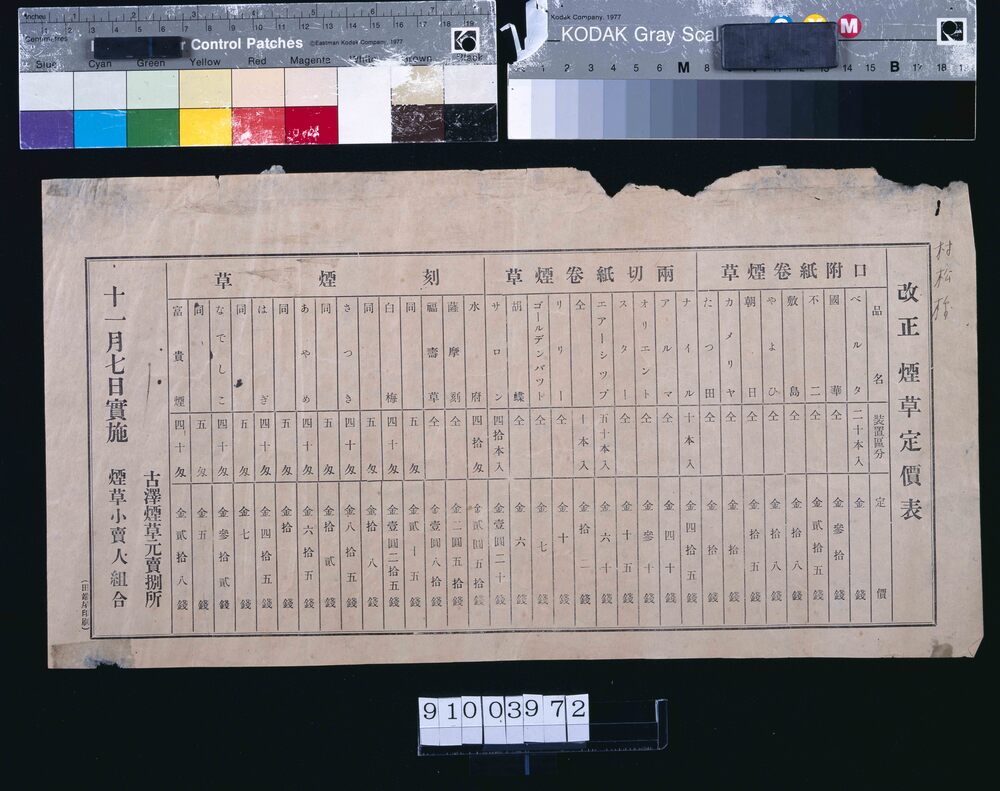 Inches 1 2 3 4 5 6 7 8
Centimetres
Control Patches ©Eastman Kodak Company, 1977 Kodak
Blue Cyan Green Yellow Red Magenta White Brown Black
Kodak Company, 1977
KODAK Gray Scale
M
1 2 3 4 5 6 M 8 9 10 11 12 13 14 15 B 17 18 19
村松
改正 煙草定價表
品名 裝置區分 定價
口附紙卷煙草
ベルタ 二十本入 金 錢
國華 仝 金參拾錢
不二 仝 金貳拾五錢
敷島 仝 金拾八錢
やよひ 仝 金拾八錢
朝日 仝 金拾五錢
カメリヤ 仝 金拾錢
たつ田 仝 金拾錢
兩切紙卷煙草
ナイル 十本入 金四拾五錢
アルマ 仝 金四十錢
オリエント 仝 金參十錢
スター 仝 金十五錢
エアーシツプ 五十本入 金六十錢
仝 十本入 金拾二錢
リリー 仝 金十錢
ゴールデンバツト 仝 金七錢
胡蝶 仝 金六錢
サロン 四拾本入 金壹圓二十錢
刻煙草
水府 四拾匁 金貳圓五拾錢
薩摩刻 仝 金二圓五拾錢
福壽草 仝 金壹圓八拾錢
同 五匁 金貳十五錢
白梅 四十匁 金壹圓二拾五錢
同 五匁 金拾八錢
さつき 四十匁 金八拾五錢
同 五匁 金拾貳錢
あやめ 四十匁 金六拾五錢
同 五匁 金拾錢
はぎ 四十匁 金四拾五錢
同 五匁 金七錢
なでしこ 四十匁 金參拾貳錢
同 五匁 金五錢
富貴煙 四十匁 金貳拾八錢
古澤煙草元賣捌所
十一月七日實施 煙草小賣人組合
91003972